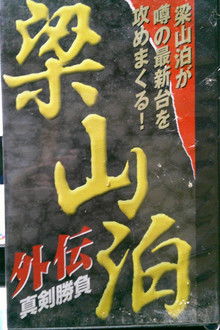 梁山泊が
噂の最新台を
攻めまくる!
梁山泊
外伝
真剣勝負